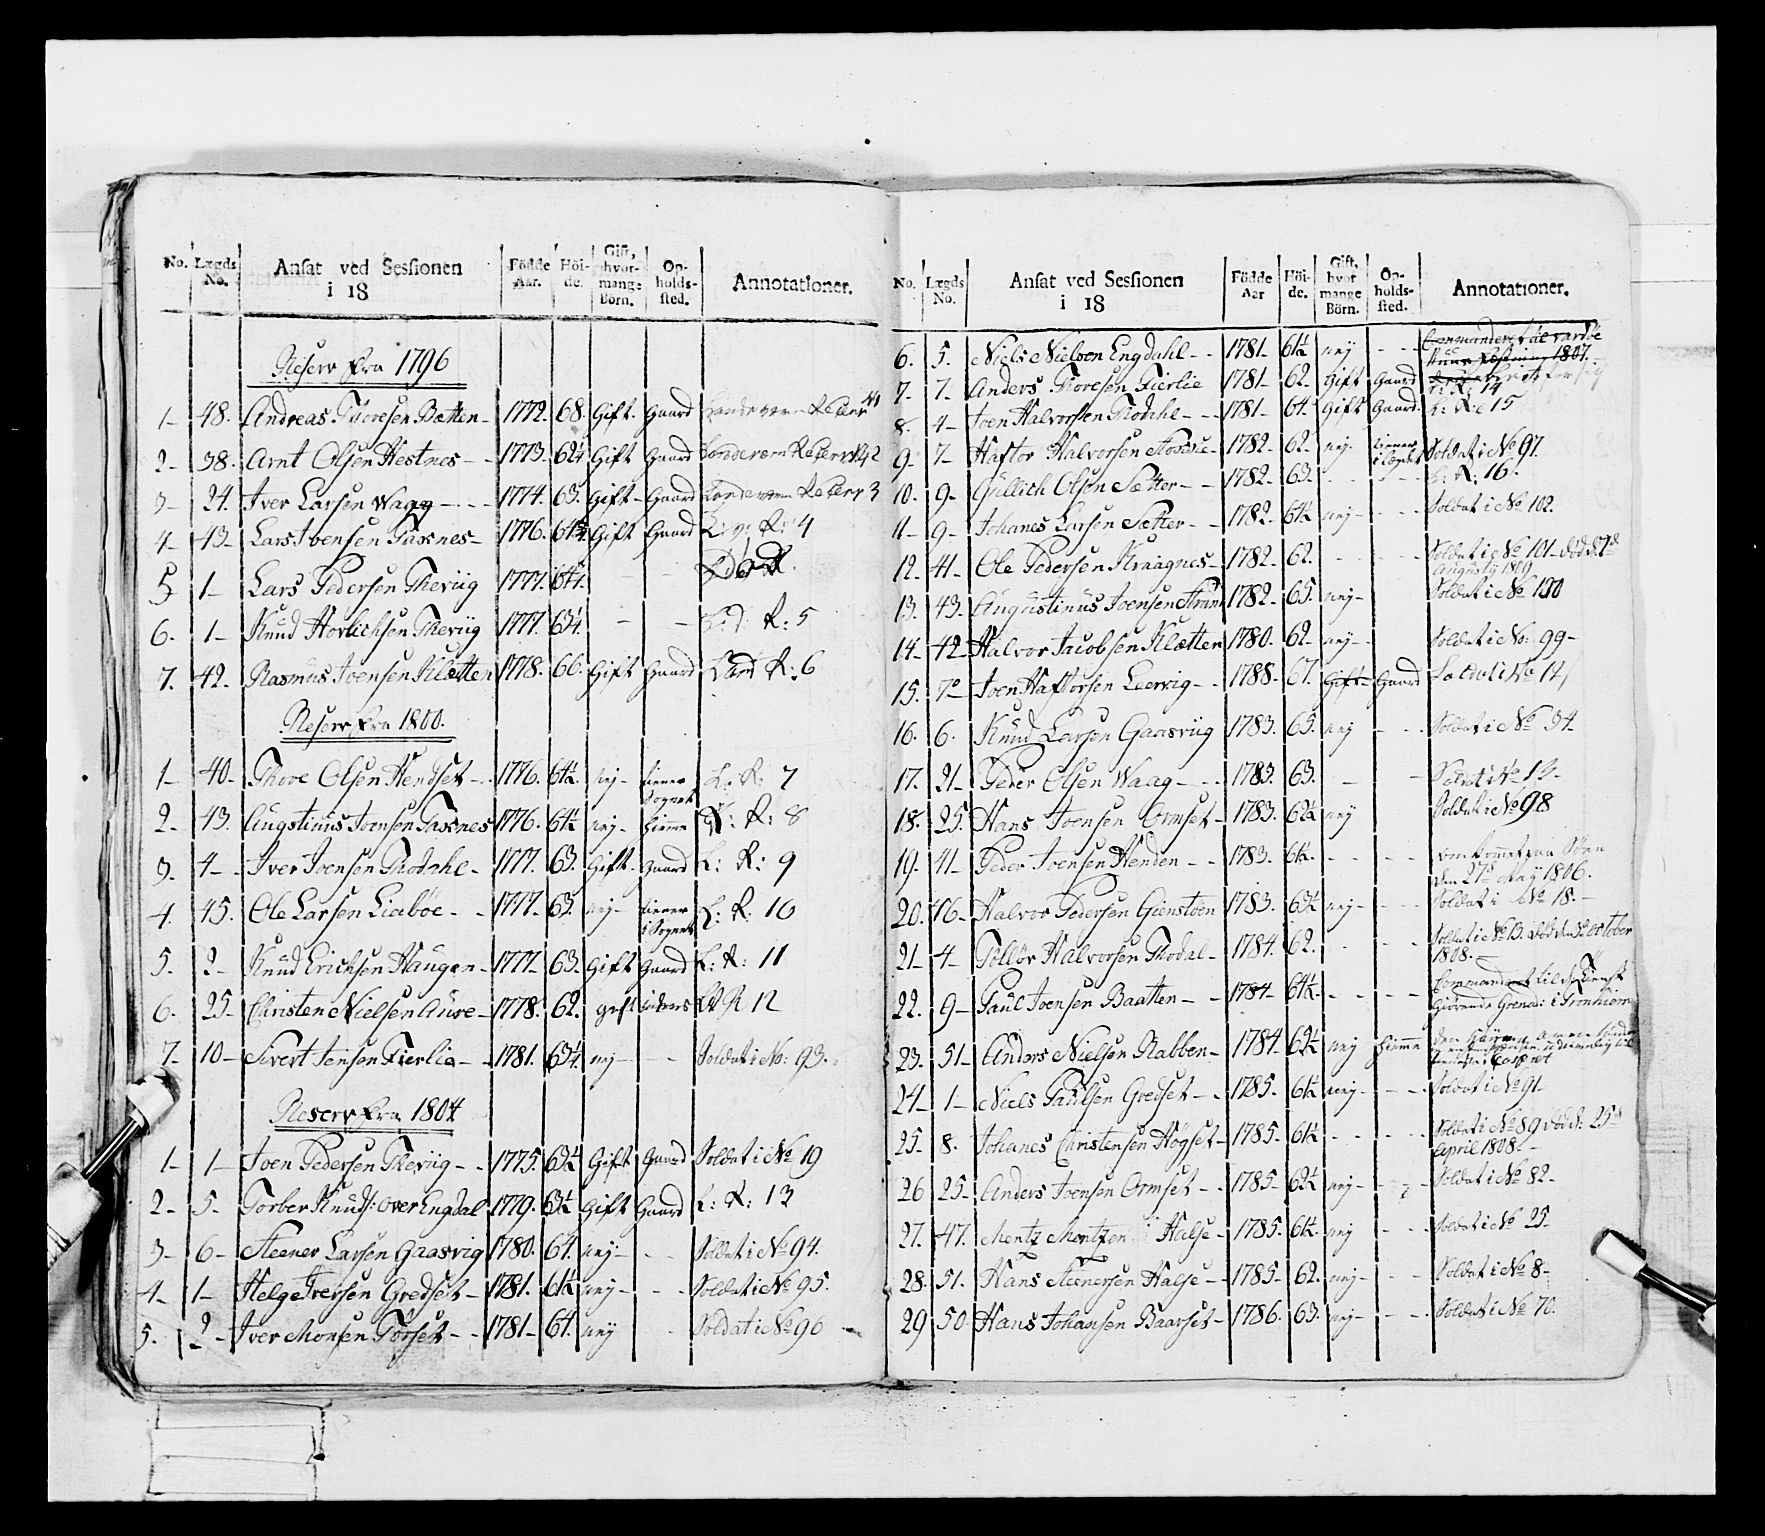 No. Lægds No. Ansat ved Sessionen i 18 Födde Aar. Höi-de. Gift, hvor-mange Börn. Op-holds-sted. Annotationer.
Reserv fra 1796
1- 48. Andreas Thoresen Betten- 1772. 68. Gift. Gaard Landeværn Reserv
2- 38. Arnt Olsen Hestnes- 1773. 62½ Gift Gaard Landeværn Reserv 2
3- 24. Iver Larsen Waag- 1774. 63. Gift- Gaard Landeværn Reserv 3
4- 43- Lars Ivensen Tassnes- 1776. 64½ Gift Gaard L: v: R: 4
5 1- Lars Pedersen Thevüg 1777. 64½.
6. 1- Knud Horlichsen Thevüg 1777. 63½. - - L: d: R: 5
7. 42- Rasmus Ivensen Kletten 1778. 66. Gift Gaard Land R: 6
Reserv fra 1800.
1- 40- Thove Olsen Hendset- 1776. 64½. nej- tiener Sognet L: R: 7
2- 43. Augstinus Ivensen Tassnes 1776. 64½ nej- hiemme L: R: 8
3. 4- Iver Ivensen Thodahl- 1777. 63. Gift- Gaard L: R: 9
4. 45. Ole Larsen Liabøe- 1777- 63. nej- tiener i Sognet L: R: 10
5. 2- Knud Erichsen Haugen- 1777- 63. Gift Gaard L: R: 11
6. 25- Christen Nielsen Aure- 1778. 62. gift L R 12
7- 10- Sivert Jensen Fierlie- 1781. 63½. nej- - Soldat i No: 93.
Reserv fra 1804
1- 1- Joen Pedersen Thevüg- 1775. 63½ Gift Gaard Soldat i No 19
2- 5- Torber Knuds: over Engdal 1779. 63½ Gift Gaard L: R: 13
3- 6- Steener Larsen Gaasvig 1780. 64. nej- - Soldat i No 94.
4- 1- Helge Iversen Gredset- 1781. 61½ nej- - Soldat i No 95.
5. 2- Iver Monsen Torset- 1781- 64. nej Soldat i No 96
No. Lægds No. Ansat ved Sessionen i 18 Födde Aar Höi-de. Gift, hvor mange Börn. Op-holds-sted. Annotationer.
6. 5. Niels Nielsen Engdahl- 1781- 61½ nej - Commanderet 1807.
7. 7- Anders Thoresen Fierlie 1781- 62- Gift Gaard L: R: 14
8. 4- Joen Halvorsen Thodahl- 1781- 64- Gift Gaard. L: R: 15
9. 7- Haftor Halvorsen 1782- 62- nej- tiener i Lægdet Soldat i No 97.
10. 9- Gullich Olsen Sætter- 1782. 63. - - L: R: 16.
11- 9- Johanes Larsen Sætter- 1782. 64½ nej- - Soldat i No 102.
12. 41- Ole Pedersen Kraagnes- 1782- 62. - - Soldat i No 101- død d: 1d Augusty 1809
13. 43. Augustinus Joensen Strøm 1782- 65. nej- Soldat i No 100
14- 42- Halvor Jacobsen Kletten 1780. 62- nej- Soldat i No: 99-
15. 7- Joen Haftorsen Leervig- 1788. 67. Gift- Gaard Soldat i No 12
16. 6. Knud Larsen Gaasvüg 1783. 65. nej - Soldat i No 34-
17. 21- Peder Olsen Waag- 1783. 63. - - Soldat i No 13-
18. 25. Hans Joensen Ormset- 1783. 62½ nej Soldat i No 98
19. 41- Peder Joensen Henden- 1783. 61½. - - omkommet paa Søen den 27d May 1806.
20. 16- Halvor Pedersen Gienstøen 1783. 63½ nej- - Soldat i No 18.-
21- 4- Tollør Halvorsen Thodal- 1784. 62. - - Soldat i No 13. død den 3d October 1808.-
22. 9- Paul Joensen Baatten- 1784- 61½. - - Commanderet til d: Tienst Giørende i Tronhiem
23. 51- Anders Nielsen Rabben- 1784. 62½ nej hiemme
24- 1- Niels Paulsen Gredset- 1785. 61½ nej- - Soldat i No 91-
25- 8. Johanes Christensen Høgset- 1785- 61½ - - Soldat i No 89 død d: 25d April 1808-
26 25- Anders Joensen Ormset- 1785- 62½ nej- - Soldat i No 82-
27. 47. Mentz Mentzen Halse- 1785. 61½ nej- - Soldat i No 25-
28. 51. Hans Steenersen Halse- 1785- 62. nej- - Soldat i No 8-
29 50 Hans Johansen Baarset- 1786. 63. nej- - Soldat i No 70.